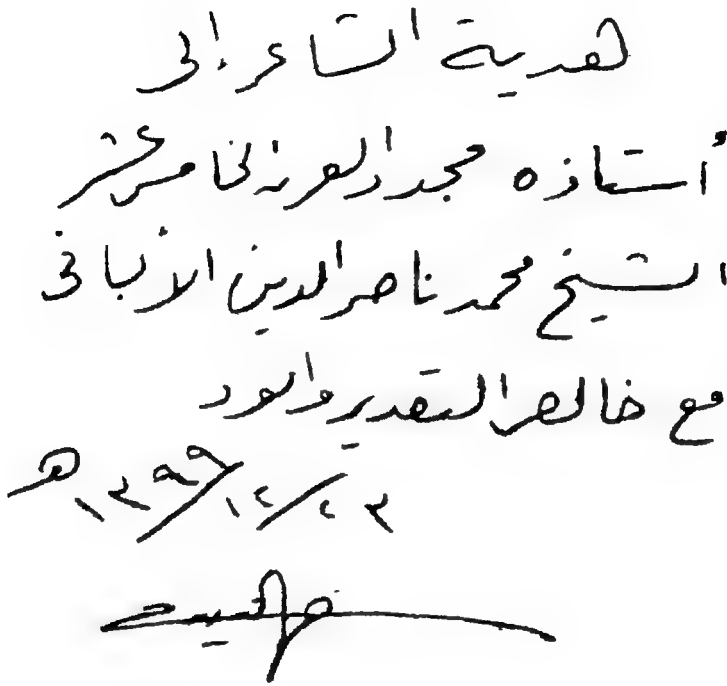 هدية الشاعر إلى
أستاذه مجدد القرن الخامس عشر
الشيخ محمد ناصر الدين الألباني
مع خالص التقدير والود
٢٣/١٢/١٣٩٩هـ